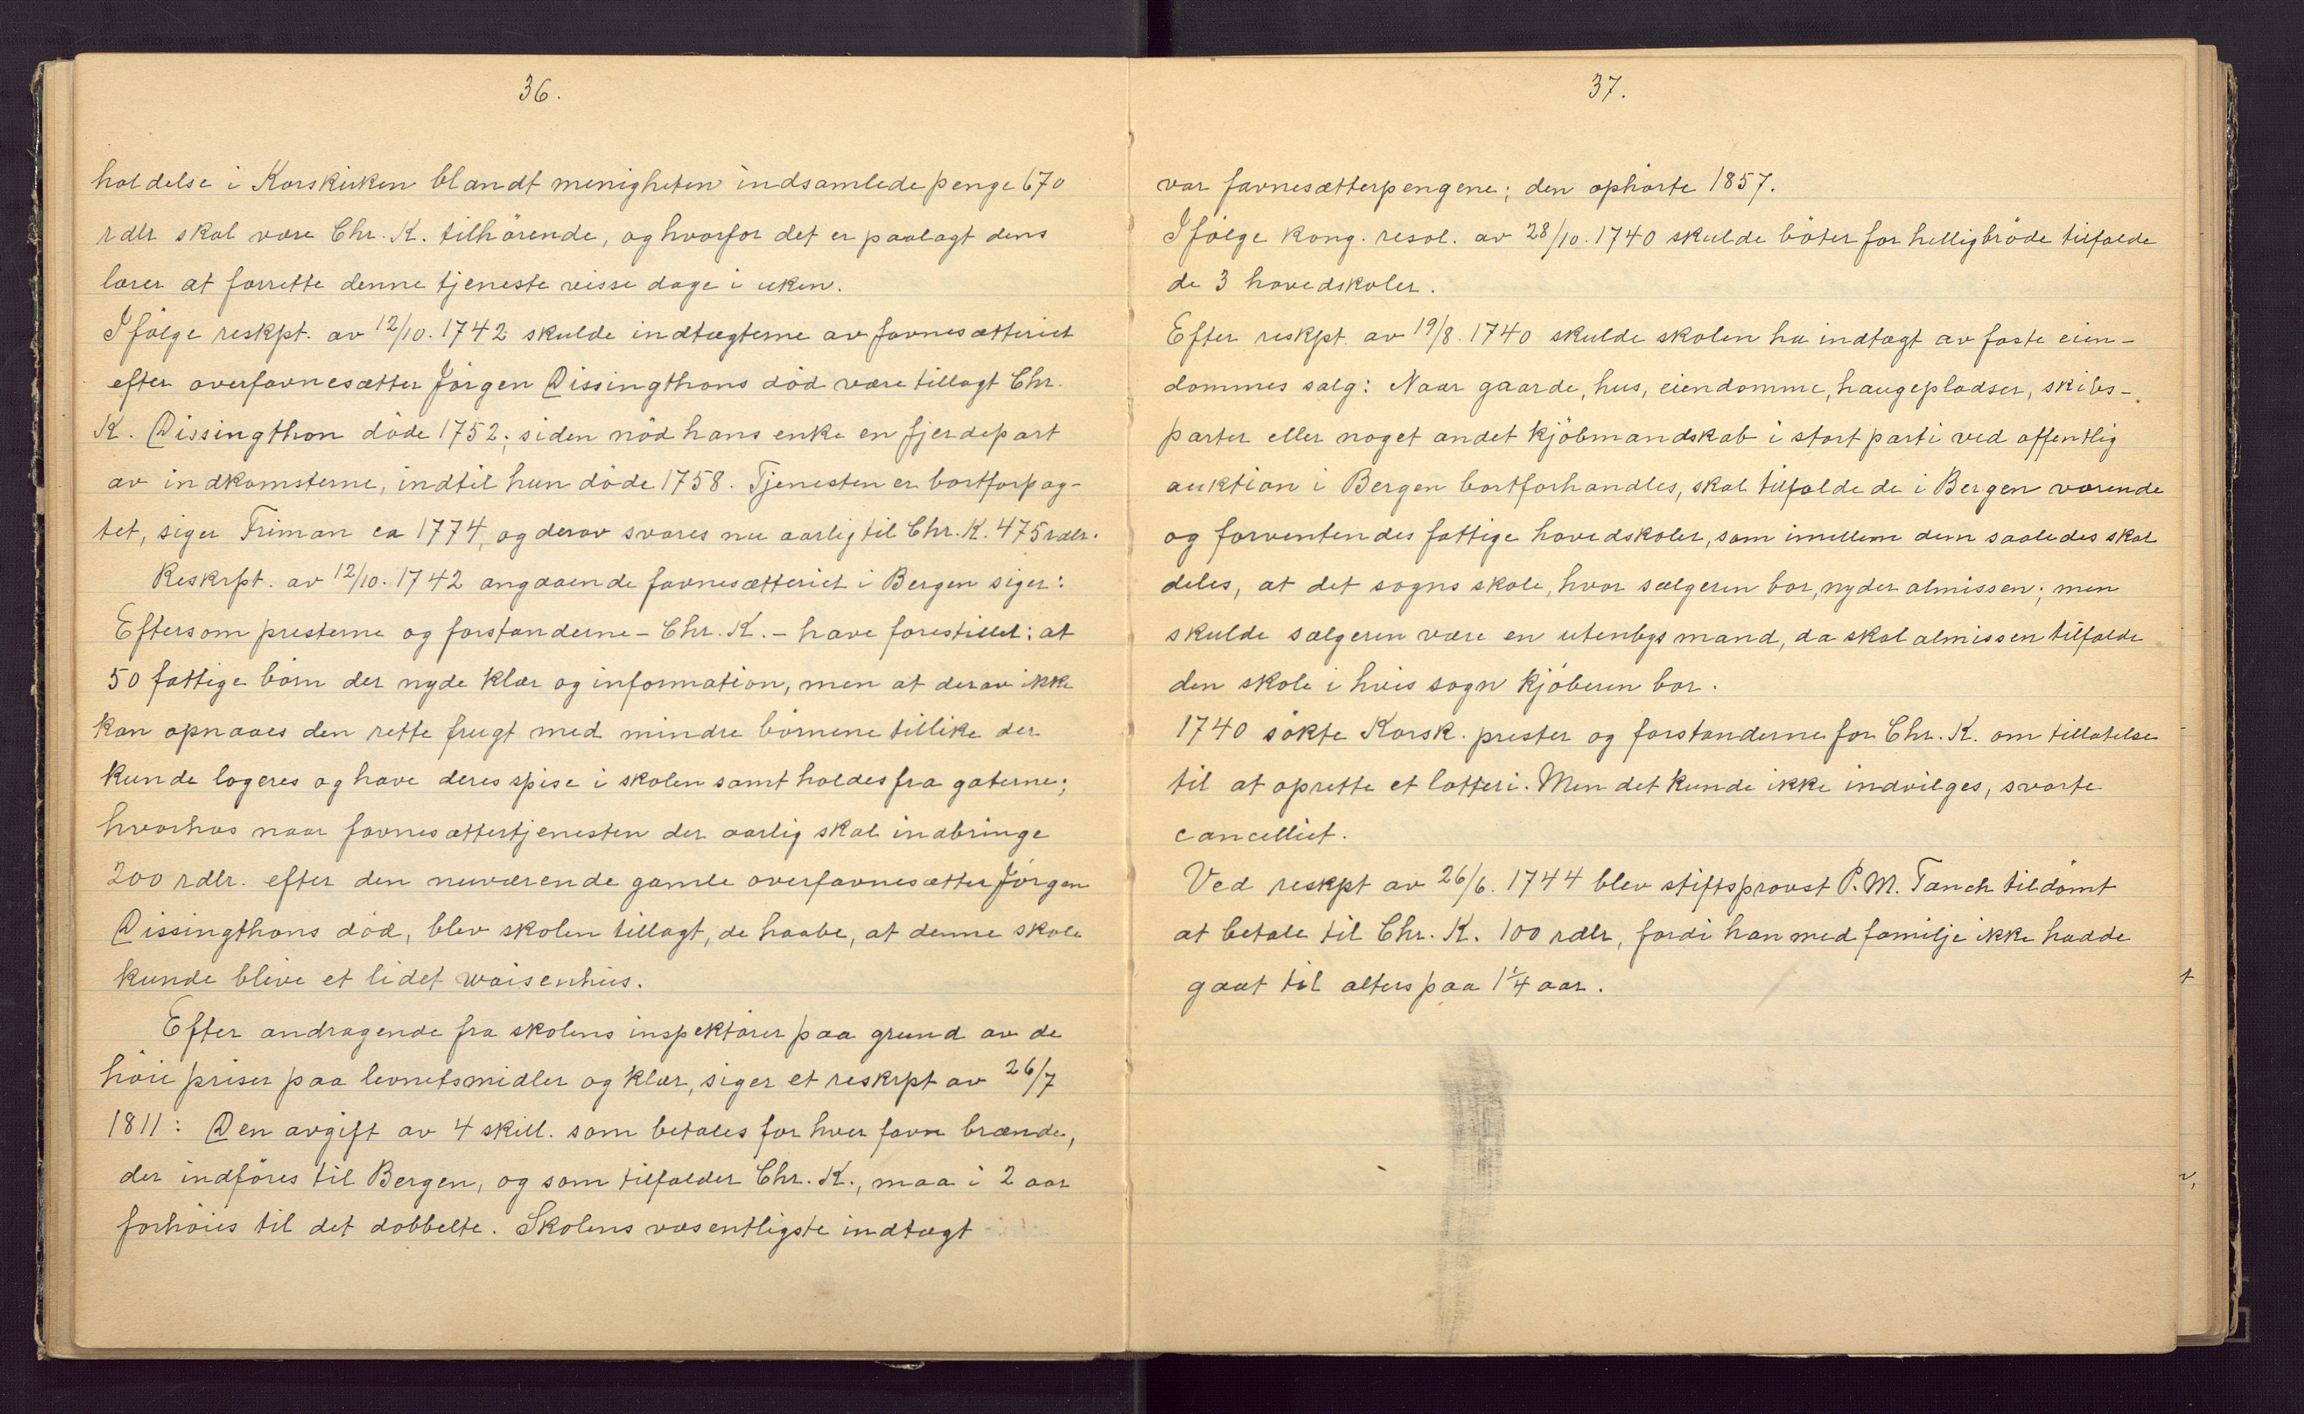 36.
holdelse i Korskirken blandt menigheten indsamlede penge 670
rdlr skal være Chr. K. tilhörende, og hvorfor det er paalagt dens
lærer at forrette denne tjeneste visse dage i uken.
Ifölge reskpt. av 12/10. 1742 skulde indtægterne av favnesætteriet
efter overfavnesætter Jörgen Dissingthons död være tillagt Chr.
K. Dissingthon döde 1752; siden nöd hans enke en fjerdepart
av indkomsterne, indtil hun döde 1758. Tjenesten er bortforpag-
tet, siger Friman ca 1774, og derav svares nu aarlig til Chr. K. 475 rdlr.
Reskrpt. av 12/10. 1742 angaaende favnesætteriet i Bergen siger:
Eftersom presterne og forstanderne - Chr. K. - have forestillet: at
50 fattige börn der nyde klær og information, men at derav ikke
kan opnaaes den rette frugt med mindre börnene tillike der
kunde logeres og have deres spise i skolen samt holdes fra gaterne;
hvorhos naar favnesættertjenesten der aarlig skal indbringe
200 rdlr. efter den nuværende gamle overfavnesætter Jörgen
Dissingthons död, blev skolen tillagt, de haabe, at denne skole
kunde blive et lidet waisenhus.
Efter andragende fra skolens inspektörer paa grund av de
höie priser paa levnetsmidler og klær, siger et reskrpt av 26/7
1811: Den avgift av 4 skill. som betales for hver favn brænde,
der indföres til Bergen, og som tilfalder Chr. K., maa i 2 aar
forhöies til det dobbelte. Skolens væsentligste indtægt
37.
var favnesætterpengene; den ophörte 1857.
Ifölge kong. resol. av 28/10. 1740 skulde böter for helligbröde tilfalde
de 3 hovedskoler.
Efter reskpt. av 19/8. 1740 skulde skolen ha indtægt av faste eien-
dommes salg: Naar gaarde, hus, eiendomme, haugepladser, skibs-
parter eller noget andet kjöbmandskab i stort parti ved offentlig
auktion i Bergen bortforhandles, skal tilfalde de i Bergen værende
og forventendes fattige hovedskoler, som imellem dem saaledes skal
deles, at det sogns skole, hvor sælgeren bor, nyder almissen; men
skulde sælgeren være en utenbys mand, da skal almissen tilfalde
den skole i hvis sogn kjöberen bor.
1740 sökte Korsk. prester og forstanderne for Chr. K. om tillatelse
til at oprette et lotteri. Men det kunde ikke indvilges, svarte
cancelliet.
Ved reskpt av 26/6. 1744 blev stiftsprovst P. M. Tanch tildömt
at betale til Chr. K. 100 rdlr, fordi han med familje ikke hadde
gaat til alters paa 1 1/4 aar.
t